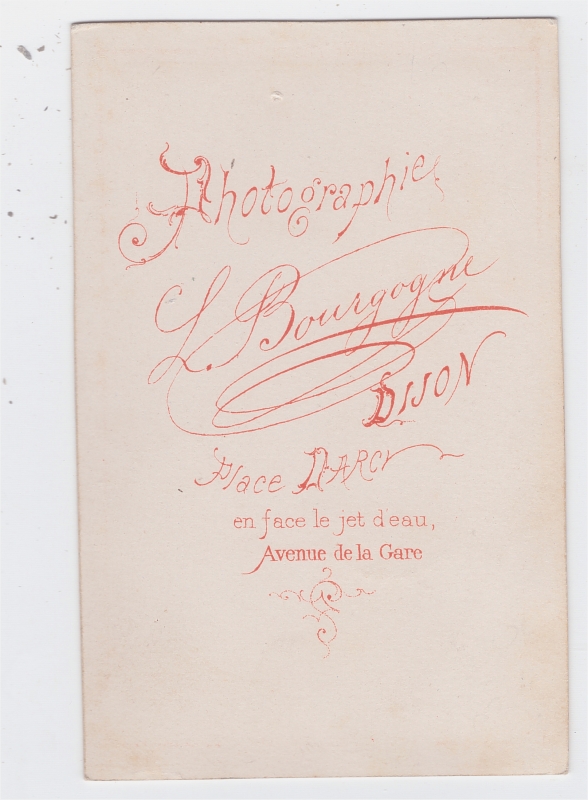 Photographie
L. Bourgogne
DIJON
Place DARCY
en face le jet d'eau,
Avenue de la Gare